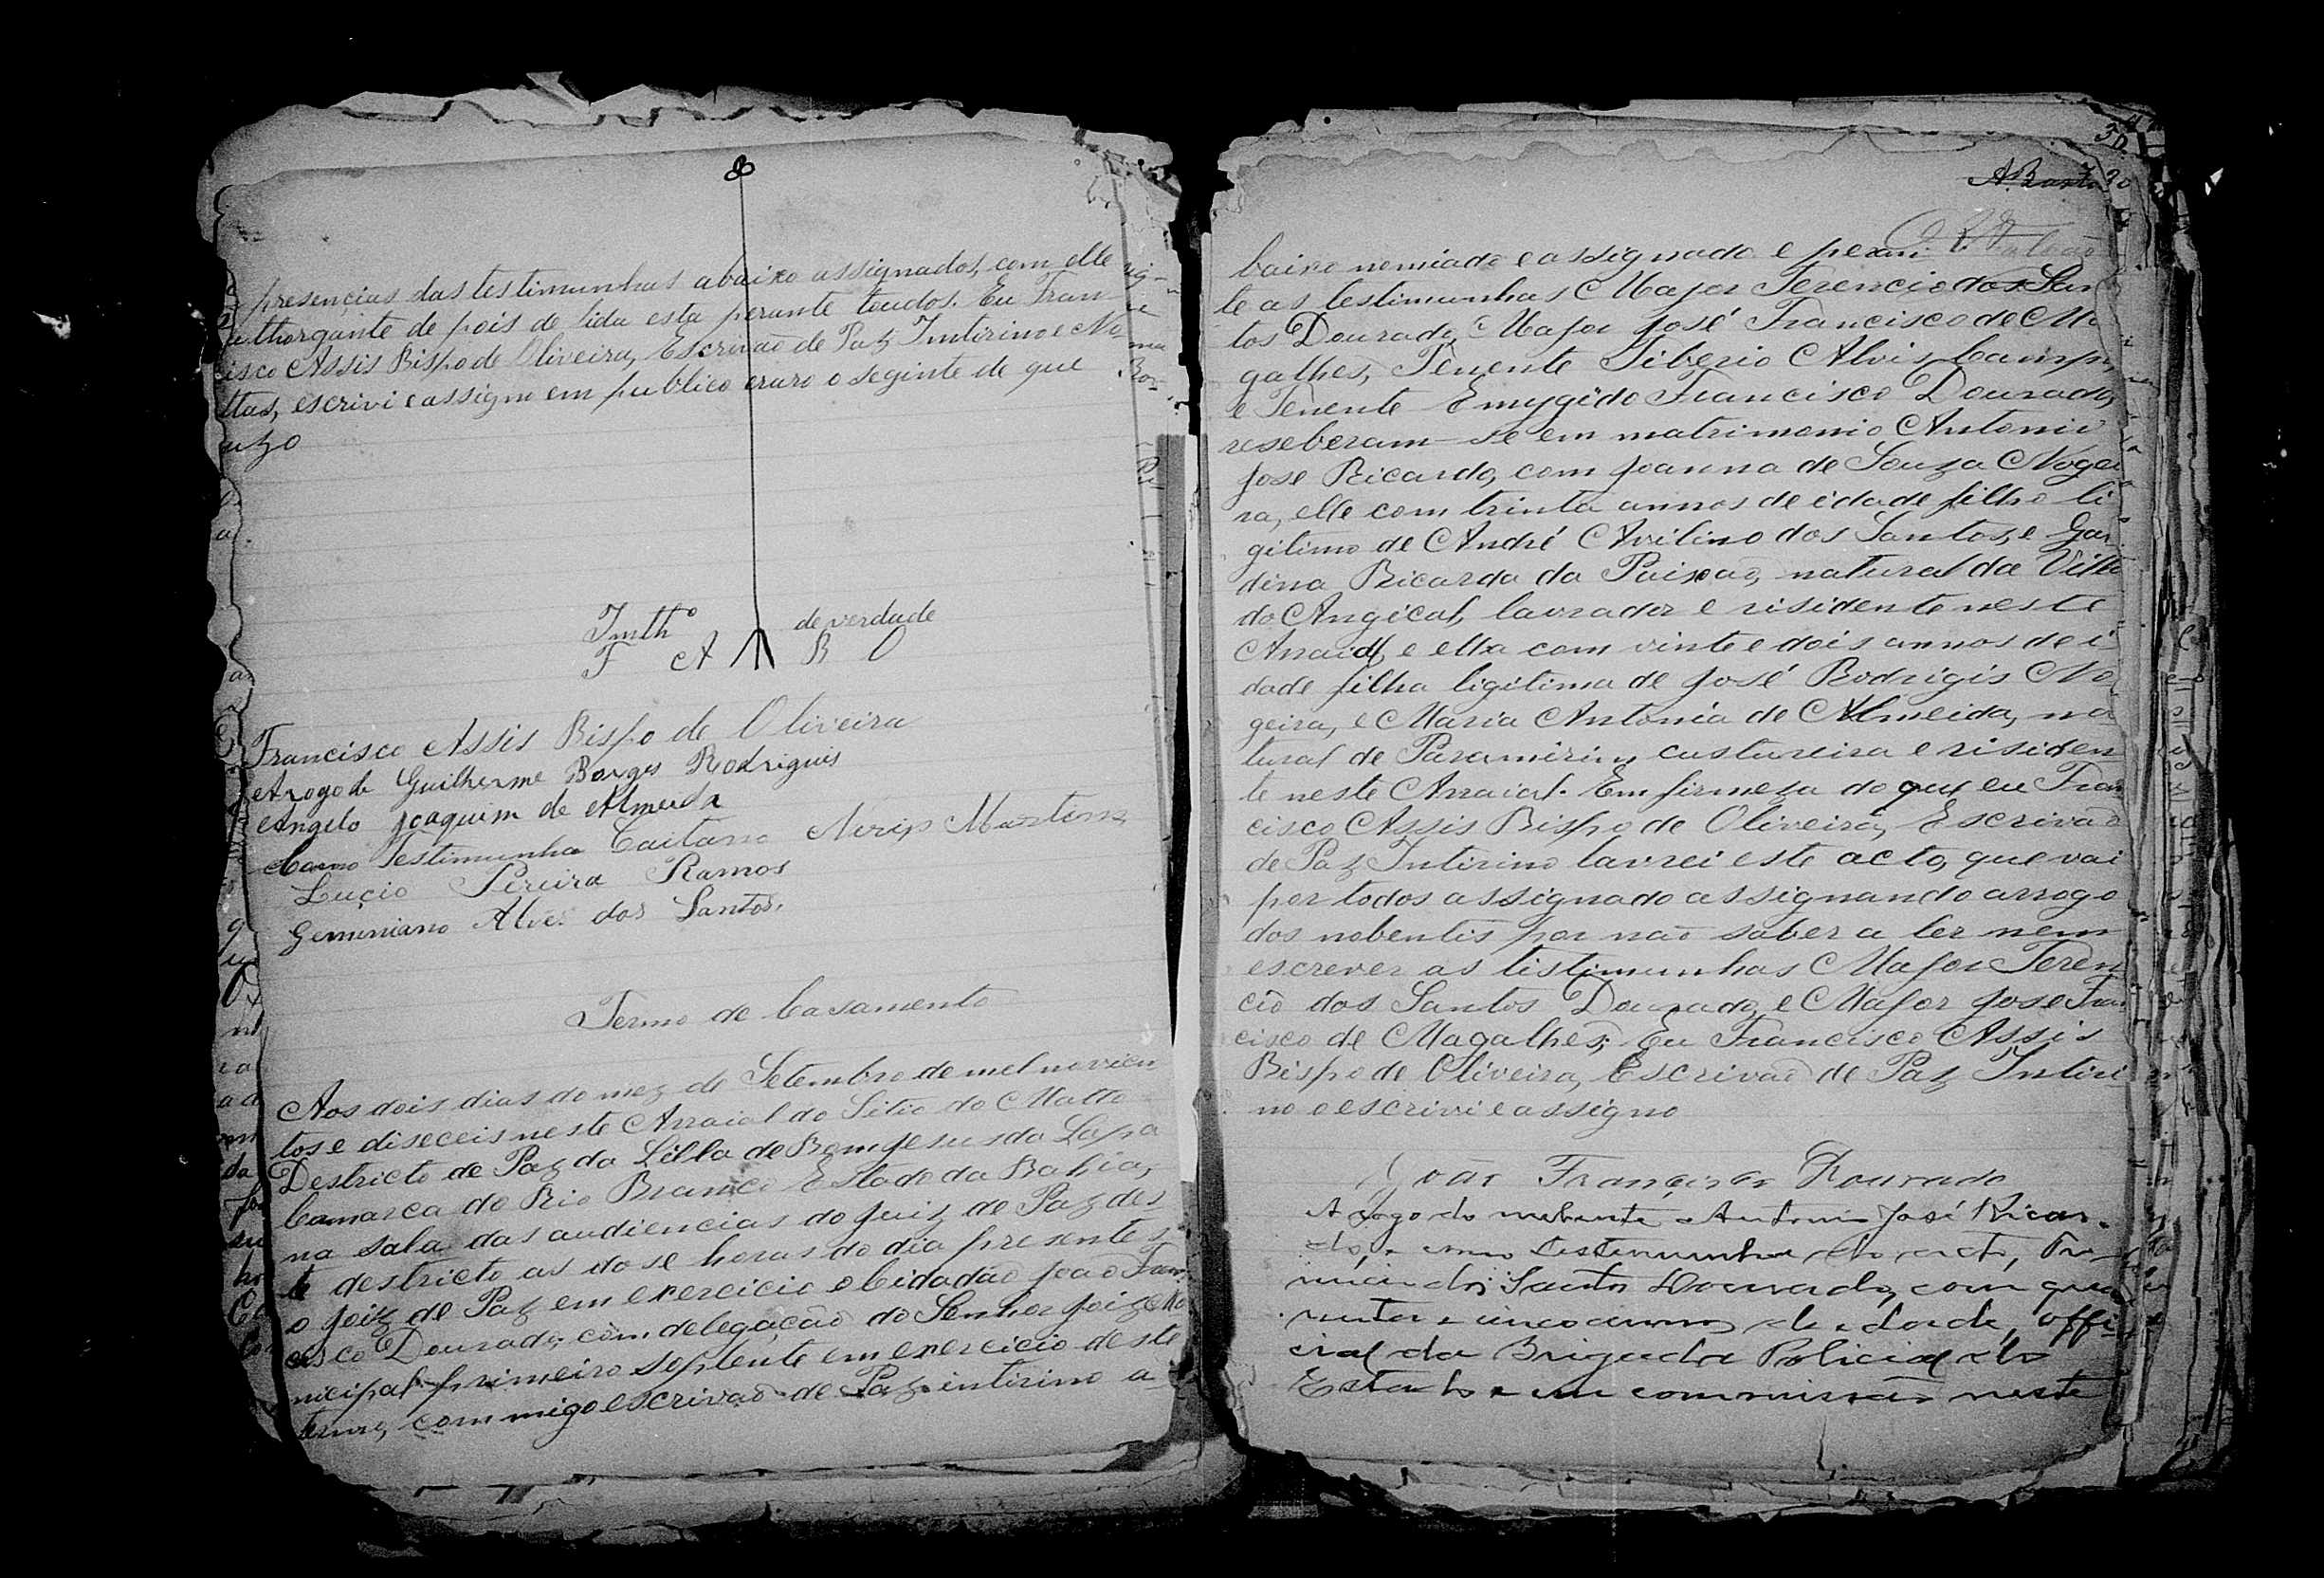 presencias das testimunhas abaixo assignados, com elle
othorgante de pois de lida esta perante toudos. Eu Fran
cisco Assis Bispo de Oliveira, Escrivão de Paz Intirino e No
ttas, escrivi e assigno em publico eraro o seginte de que
uzo
Imthº de verdade
F A B O
Francisco Assis Bispo de Oliveira
Arogo de Guilherme Borges Rodriguis
Angelo Joaquim de Almeida
Como Testimunha Caitano Martins
Lucio Pereira Ramos
Geminiano Alves dos Santos.
Termo de Casamento
Aos dois dias do mez de Setembro de mel novicen
tos e diseceis neste Arraial do Sitio do Matto
Destricto de Paz da Villa de Bom Jesus da Lapa
Camarca do Rio Branco Estado da Bahia,
na sala das audiencias do Juiz de Paz des
te destricto as dose horas do dia presentes
o Joiz de Paz em exercicio o Cidadão João Fran
cisco Dourado, com delegação do Senhor Joiz Mo
nicipal primeiro soplente em exercicio deste
termo, commigo escrivão de Paz intirino a
30
baixo nomiado e assignado e peran
te as testimunhas Major Terencio dos San
tos Dourado, Major José Francisco de Ma
galhes, Tenente Tiberio Alvis Campos,
e Tenente Emygido Francisco Dourado,
reseberam-se em matrimonio Antonio
Jose Ricardo, com Joanna de Souza Nogei
ra, elle com trinta annos de idade filho li
gitimo de André Avilino dos Santos, e Gar
dina Ricarda da Paixão, natural da Villa
do Angical, lavrador e risidente neste
Arraial, e ella com vinte e dois annos de i
dade filha ligitima de José Rodrigis No
geira, e Maria Antonia de Almeida, na
tural de Paramirim, custureira e risiden
te neste Arraial. Em firmeza do que eu Fran
cisco Assis Bispo de Oliveira, Escrivão
de Paz Intirino lavrei este acto, que vai
por todos assignado assignando arrogo
dos nobentis por não saber a ler nem
escrever as tistimunhas Major Teren
cio dos Santos Dourado, e Major Jose Fran
cisco de Magalhes; Eu Francisco Assis
Bispo de Oliveira, Escrivão de Paz Intiri
no o escrivi e assigno
João Francisco Dourado
A rogo do nubente Antonio José Ricar
do, e como testimunha do acto, Te
rencio dos Santos Dourado, com qua
renta e cinco annos de edade, offi
cial da Brigada Policial do
Estado e em commissão neste